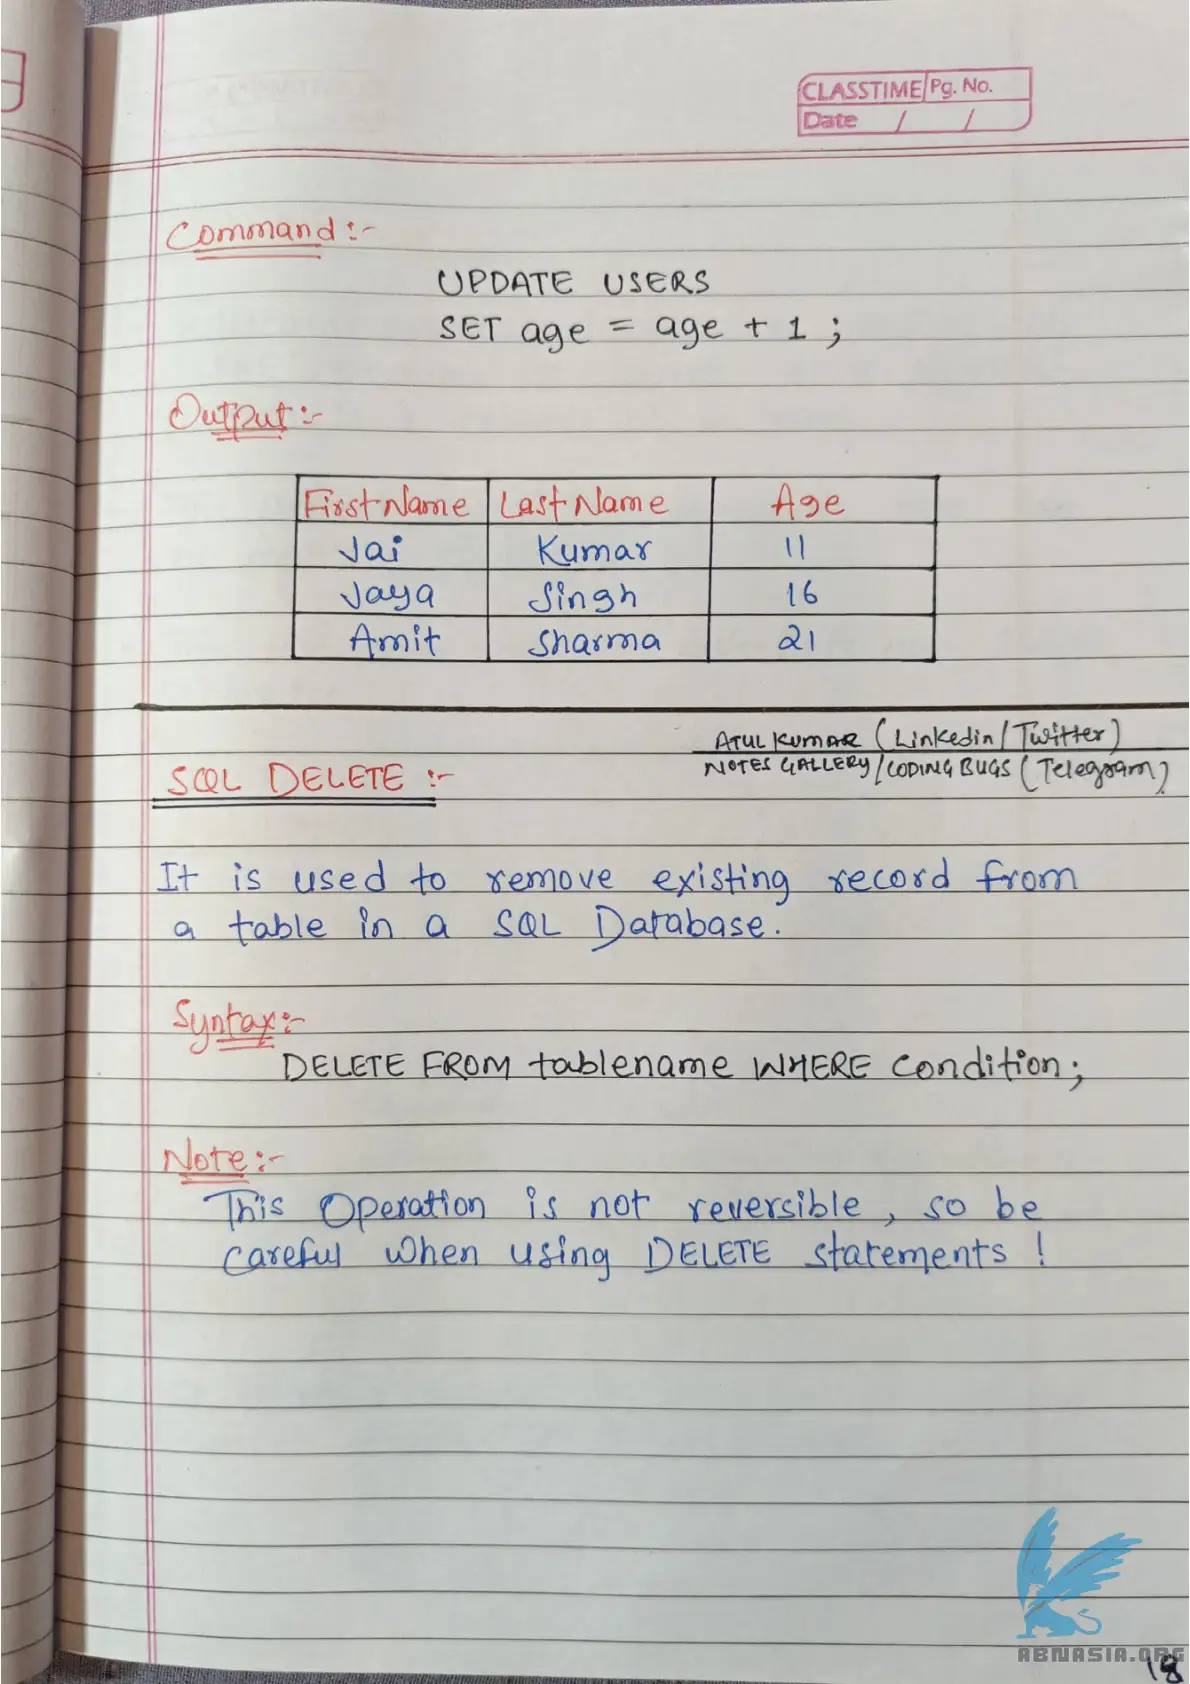 CLASSTIME Pg. No.
Date / /
Command :-
UPDATE USERS
SET age = age + 1 ;
Output :-
FirstName LastName Age
Jai Kumar 11
Jaya Singh 16
Amit Sharma 21
ATUL KUMAR (Linkedin / Twitter)
NOTES GALLERY / CODING BUGS (Telegram)
SQL DELETE :-
It is used to remove existing record from
a table in a SQL Database.
Syntax :-
DELETE FROM tablename WHERE Condition ;
Note :-
This Operation is not reversible , so be
careful when using DELETE statements !
ABNASIA.ORG
18